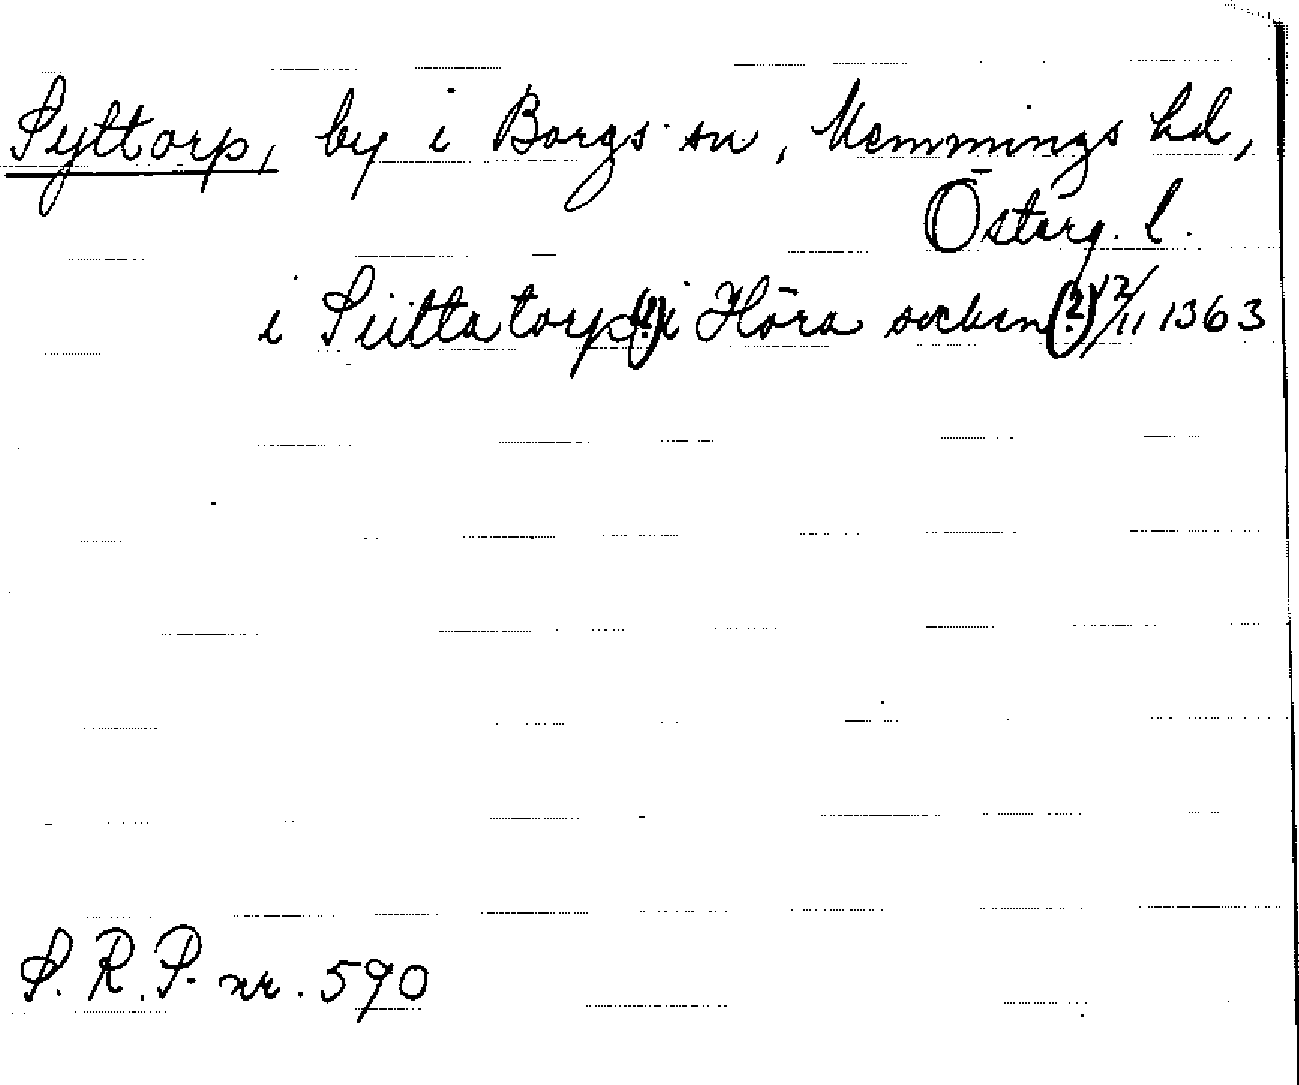 Syttorp, by i Borgs sn, Memmings hd,
Österg. l.
i Siittatorp (?) i Höra socken (?) 12/11 1363
S. R. P. nr. 590